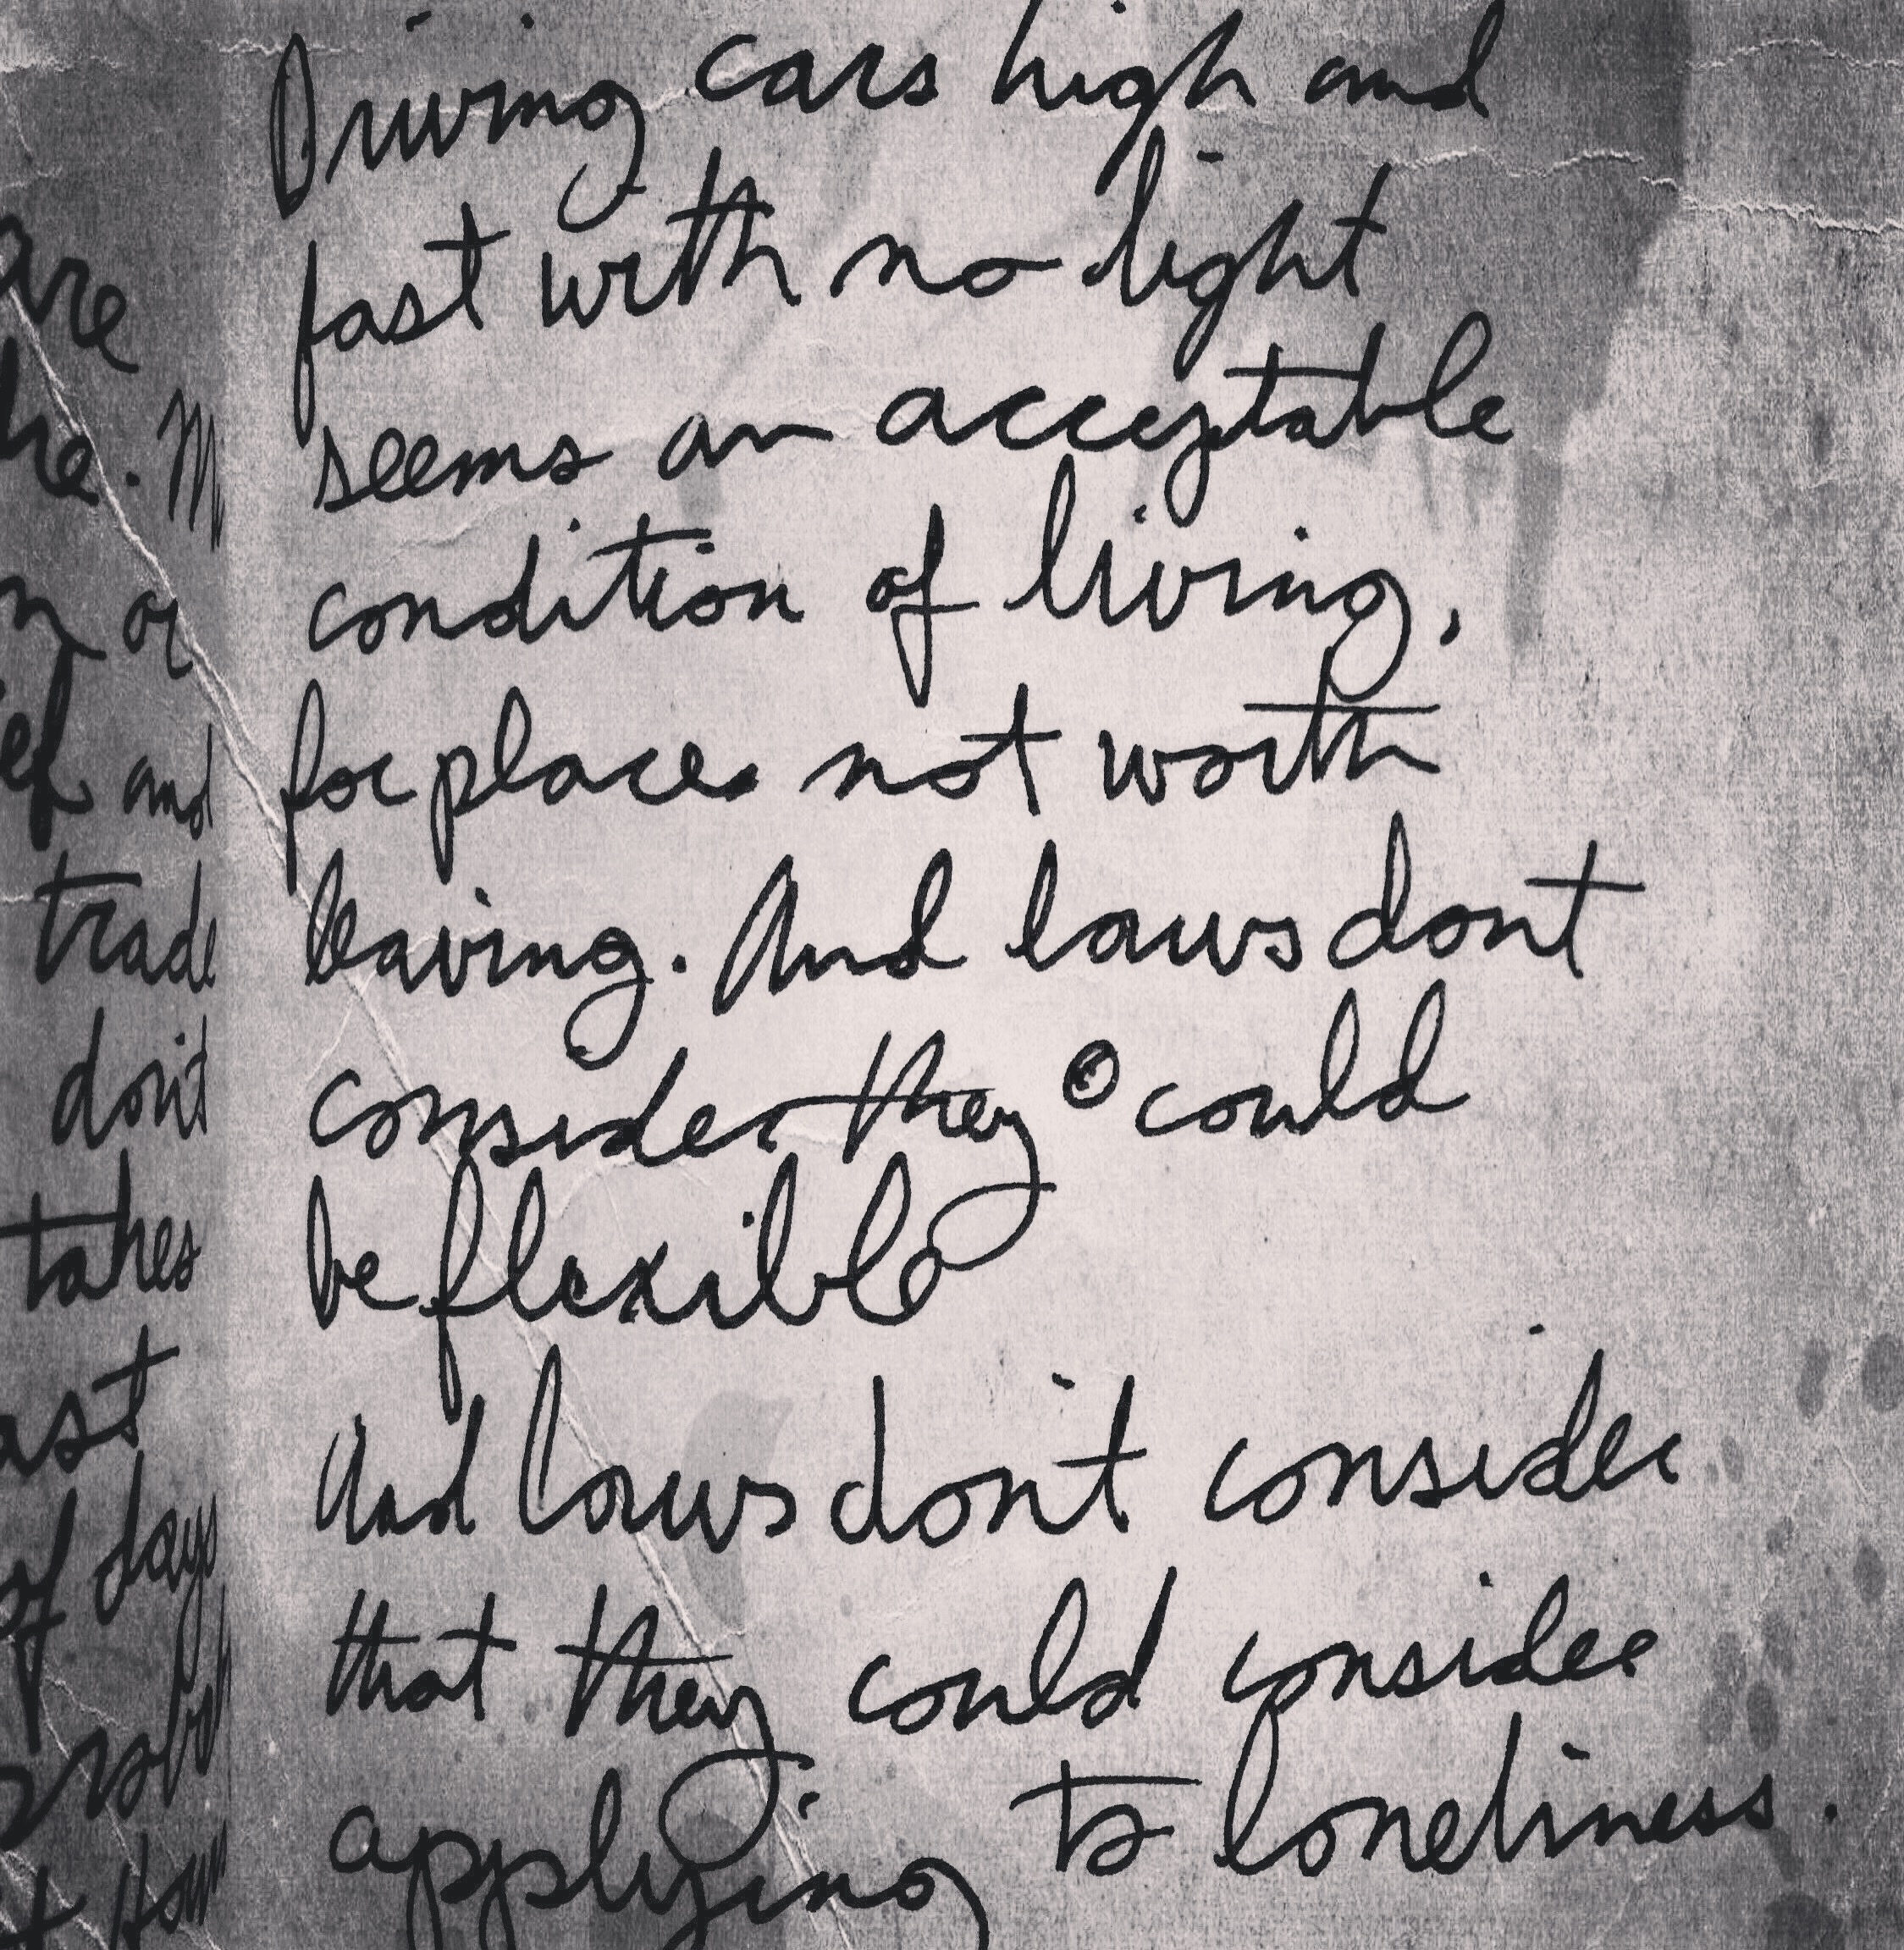 Driving cars high and
fast with no light
seems an acceptable
condition of living,
for places not worth
leaving. And laws dont
consider they could
be flexible
And laws don't consider
that they could consider
applying to loneliness.
are
he. M
n or
ef and
trade
don't
takes
ast
of days